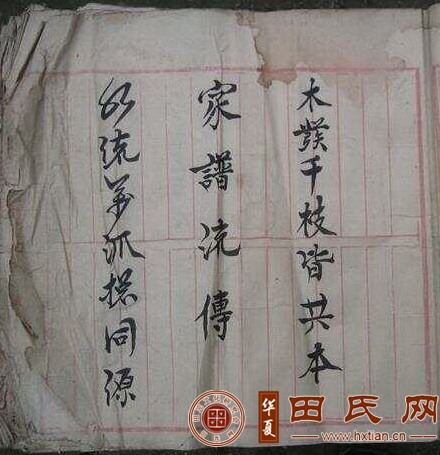 木發千枝皆共本
家譜流傳
水流萬派總同源
华夏
田氏网
www.hxtian.cn